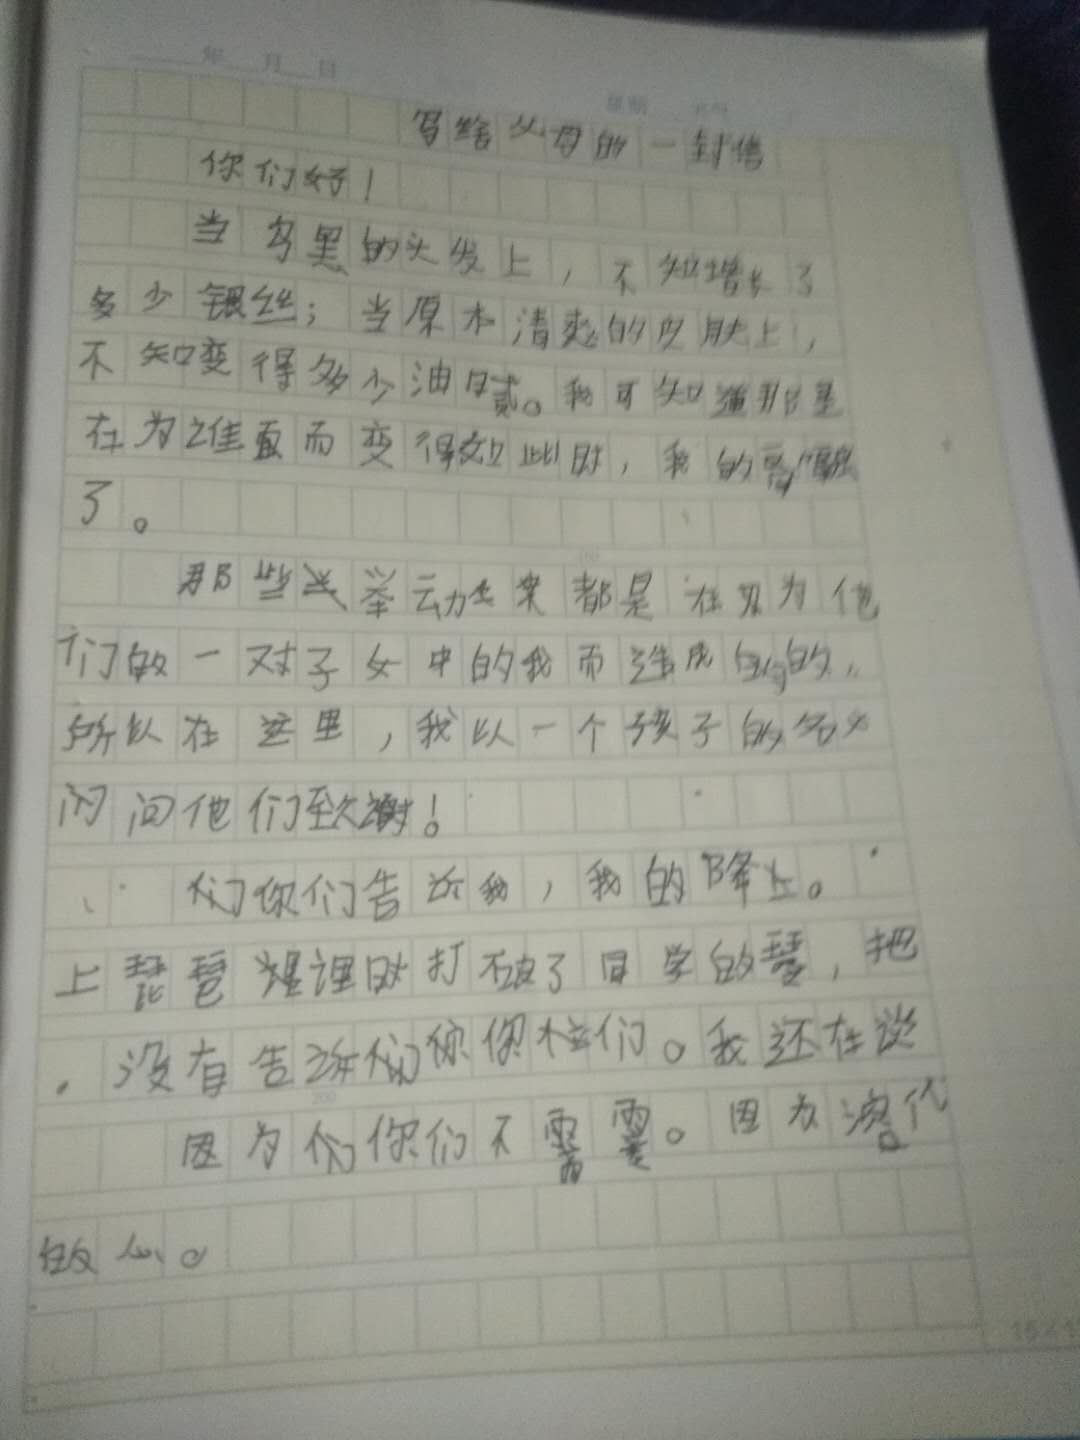 年 月 日
星期 天气
写给父母的一封信
你们好！
当乌黑的头发上，不知增长了
多少银丝；当原本清爽的皮肤上，
不知变得多少油腻。我可知道那是
在为谁而变得如此时，我的
了。
那些举动 来都是在 为他
们的一对子女中的我而造成 的，
所以在这里，我以一个孩子的名义
向他们致谢！
们你们告诉我，我的降上。
上琵琶 课时打破了同学的琴，把
没有告诉们你你 们。我还在谈
因为 们你们不需要。因为 代
做心。